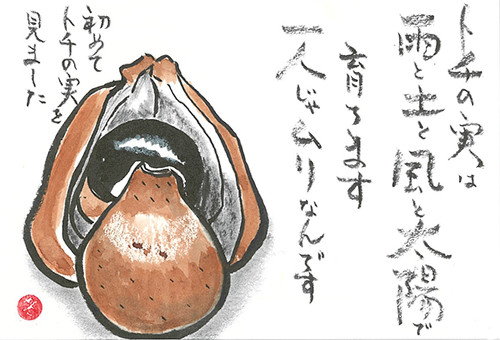 トチの実は
雨と土と風と太陽で
育ちます
一人じゃムリなんです
初めて
トチの実を
見ました